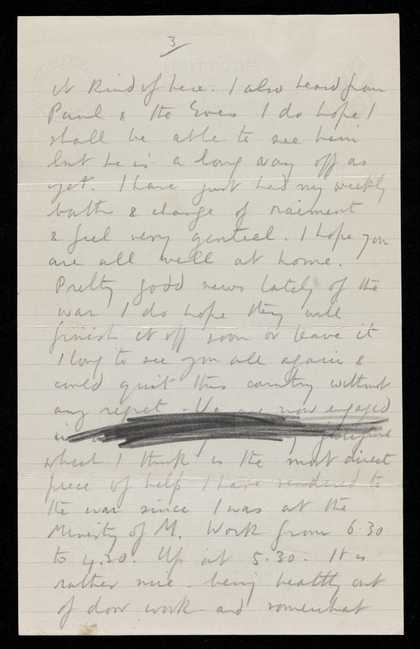 3
it kind of here. I also heard from
Paul & the Eves I do hope I
shall be able to see him
but he is a long way off as
yet. I have just had my weekly
bath & change of raiment
& feel very genteel. I hope you
are all well at home.
Pretty good news lately of the
war I do hope they will
finish it off soon or leave it
I long to see you all again &
could quit this country without
any regret. We are now engaged
in
which I think is the most direct
piece of help I have rendered to
the war since I was at the
Ministry of M. Work from 6.30
to 4.30. Up at 5.30. It is
rather nice being healthy out
of door work and somewhat